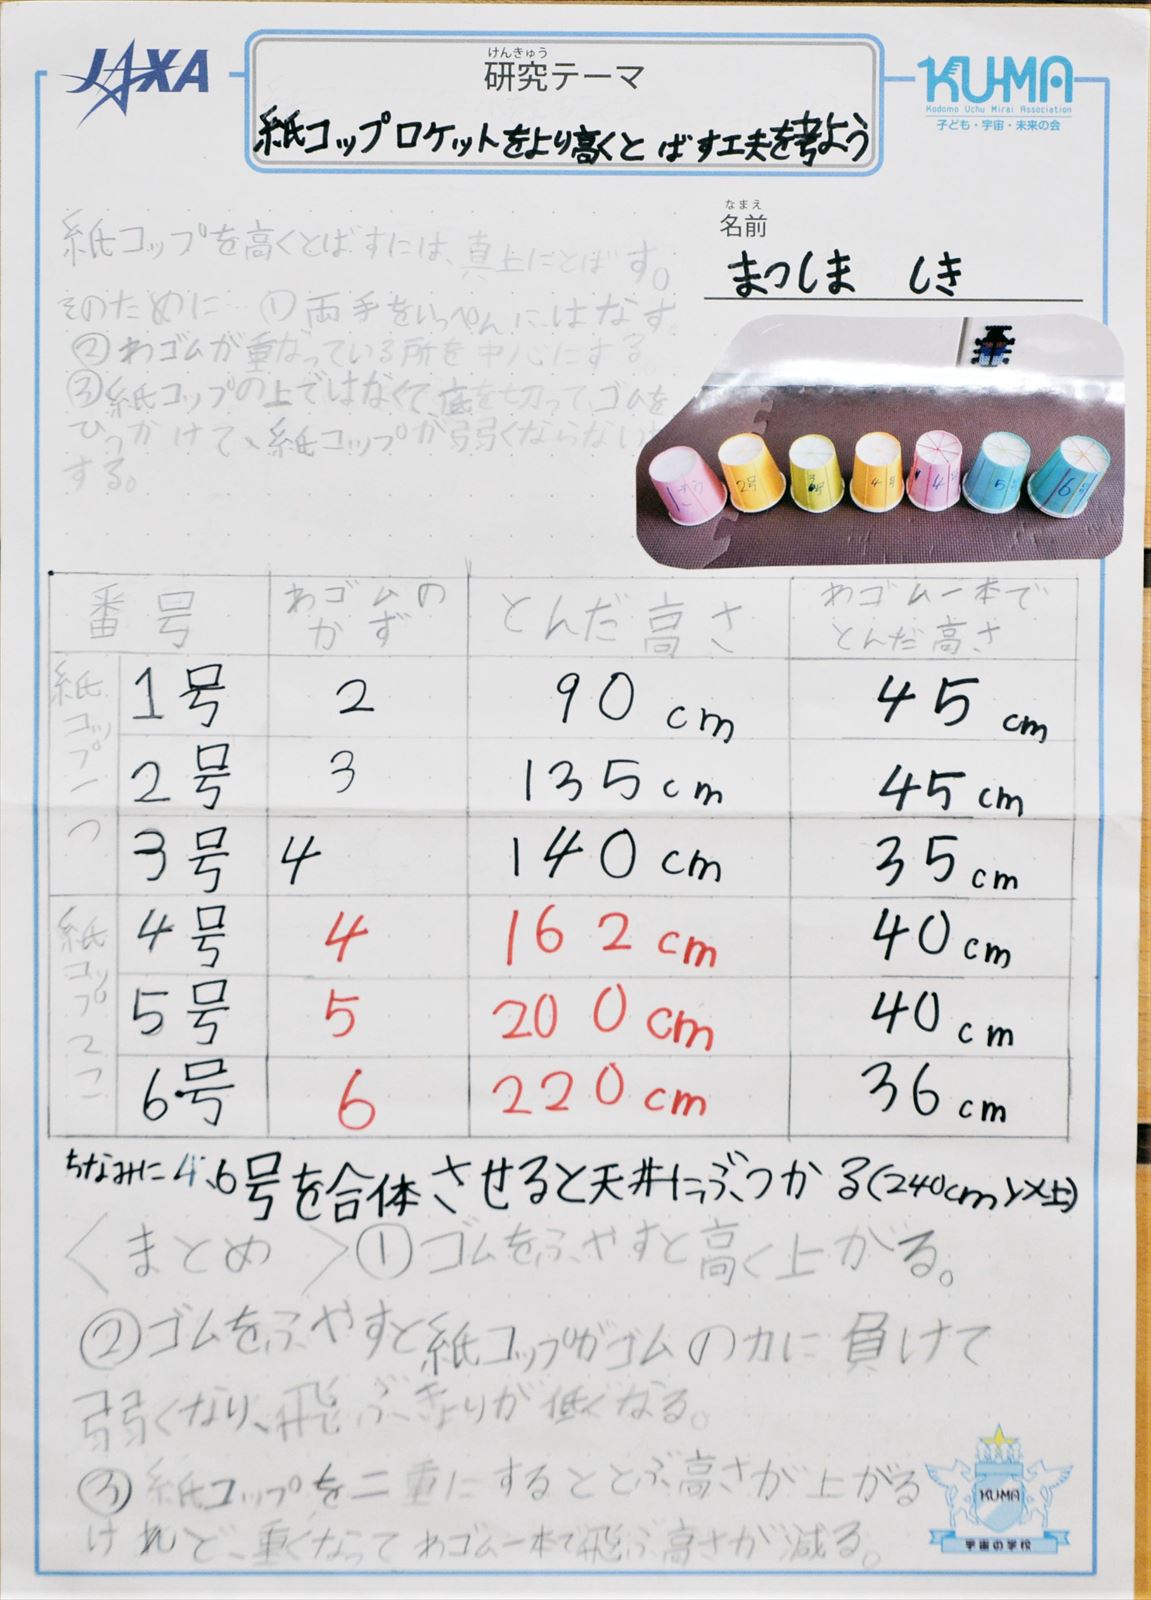 JAXA
けんきゅう
研究テーマ
紙コップロケットをより高くとばす工夫を考よう
KU-MA
Kodomo Uchu Mirai Association
子ども・宇宙・未来の会
なまえ
名前
まつしま しき
紙コップを高くとばすには、真上にとばす。
そのために ①両手をいっぺんにはなす
②わゴムが重なっている所を中心にする。
③紙コップの上ではなくて、底を切って、ゴムを
ひっかけて、紙コップが弱くならない
する。
1ごう
2号
3号
4号
4号
5号
6号
番号 わゴムのかず とんだ高さ わゴム一本でとんだ高さ
紙コップ一つ
1号 2 90cm 45cm
2号 3 135cm 45cm
3号 4 140cm 35cm
紙コップ二こ
4号 4 162cm 40cm
5号 5 200cm 40cm
6号 6 220cm 36cm
ちなみに4、6号を合体させると天井にぶつかる(240cm以上)
〈まとめ〉①ゴムをふやすと高く上がる。
②ゴムをふやすと紙コップがゴムの力に負けて
弱くなり、飛ぶきょりが低くなる。
③紙コップを二重にするととぶ高さが上がる
けれど、重くなってわゴム一本で飛ぶ高さが減る。
KUMA
宇宙の学校